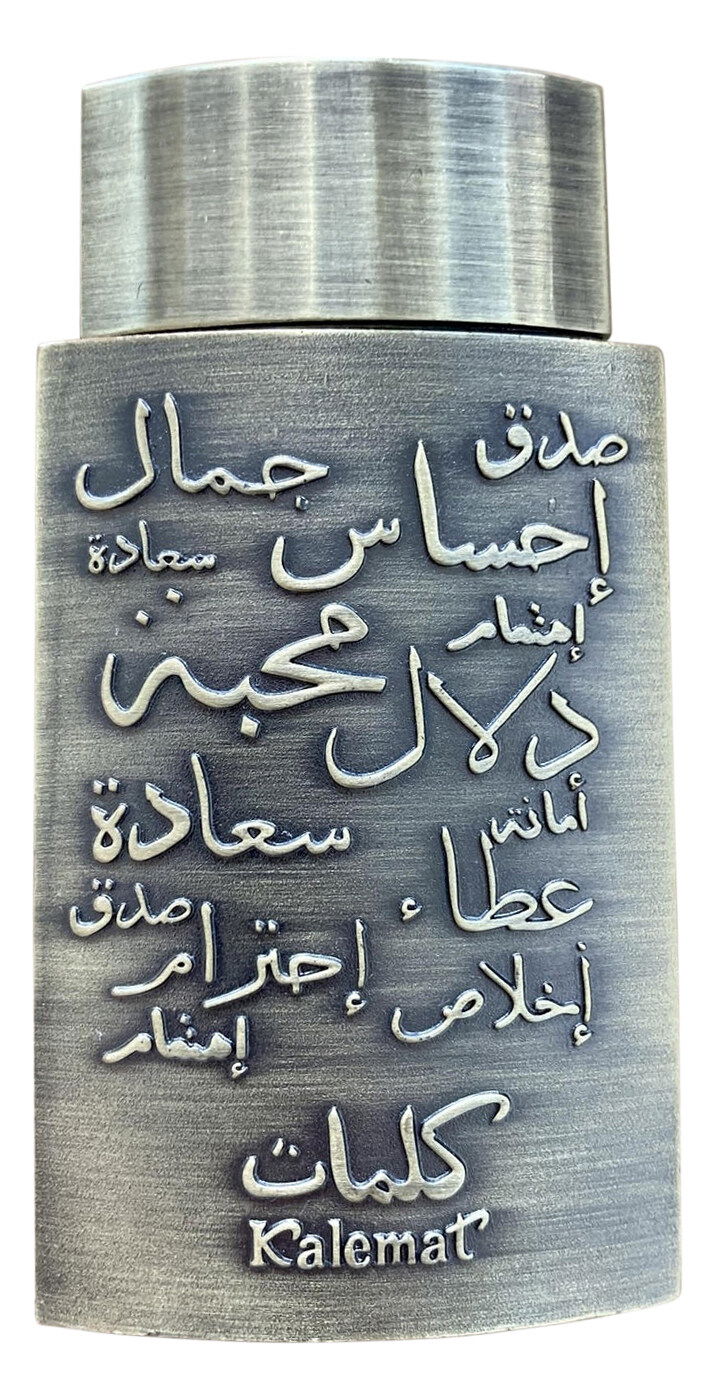 صدق جمال
إحساس سعادة
إهتمام محبة
دلال
أمانة سعادة
عطاء صدق
إحترام
إخلاص إهتمام
كلمات
Kalemat